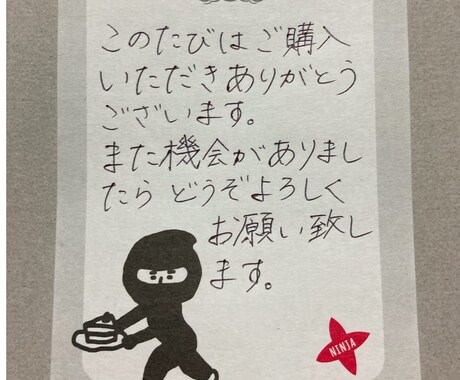 このたびはご購入
いただきありがとう
ございます。
また機会がありまし
たら どうぞよろしく
お願い致し
ます。
NINJA